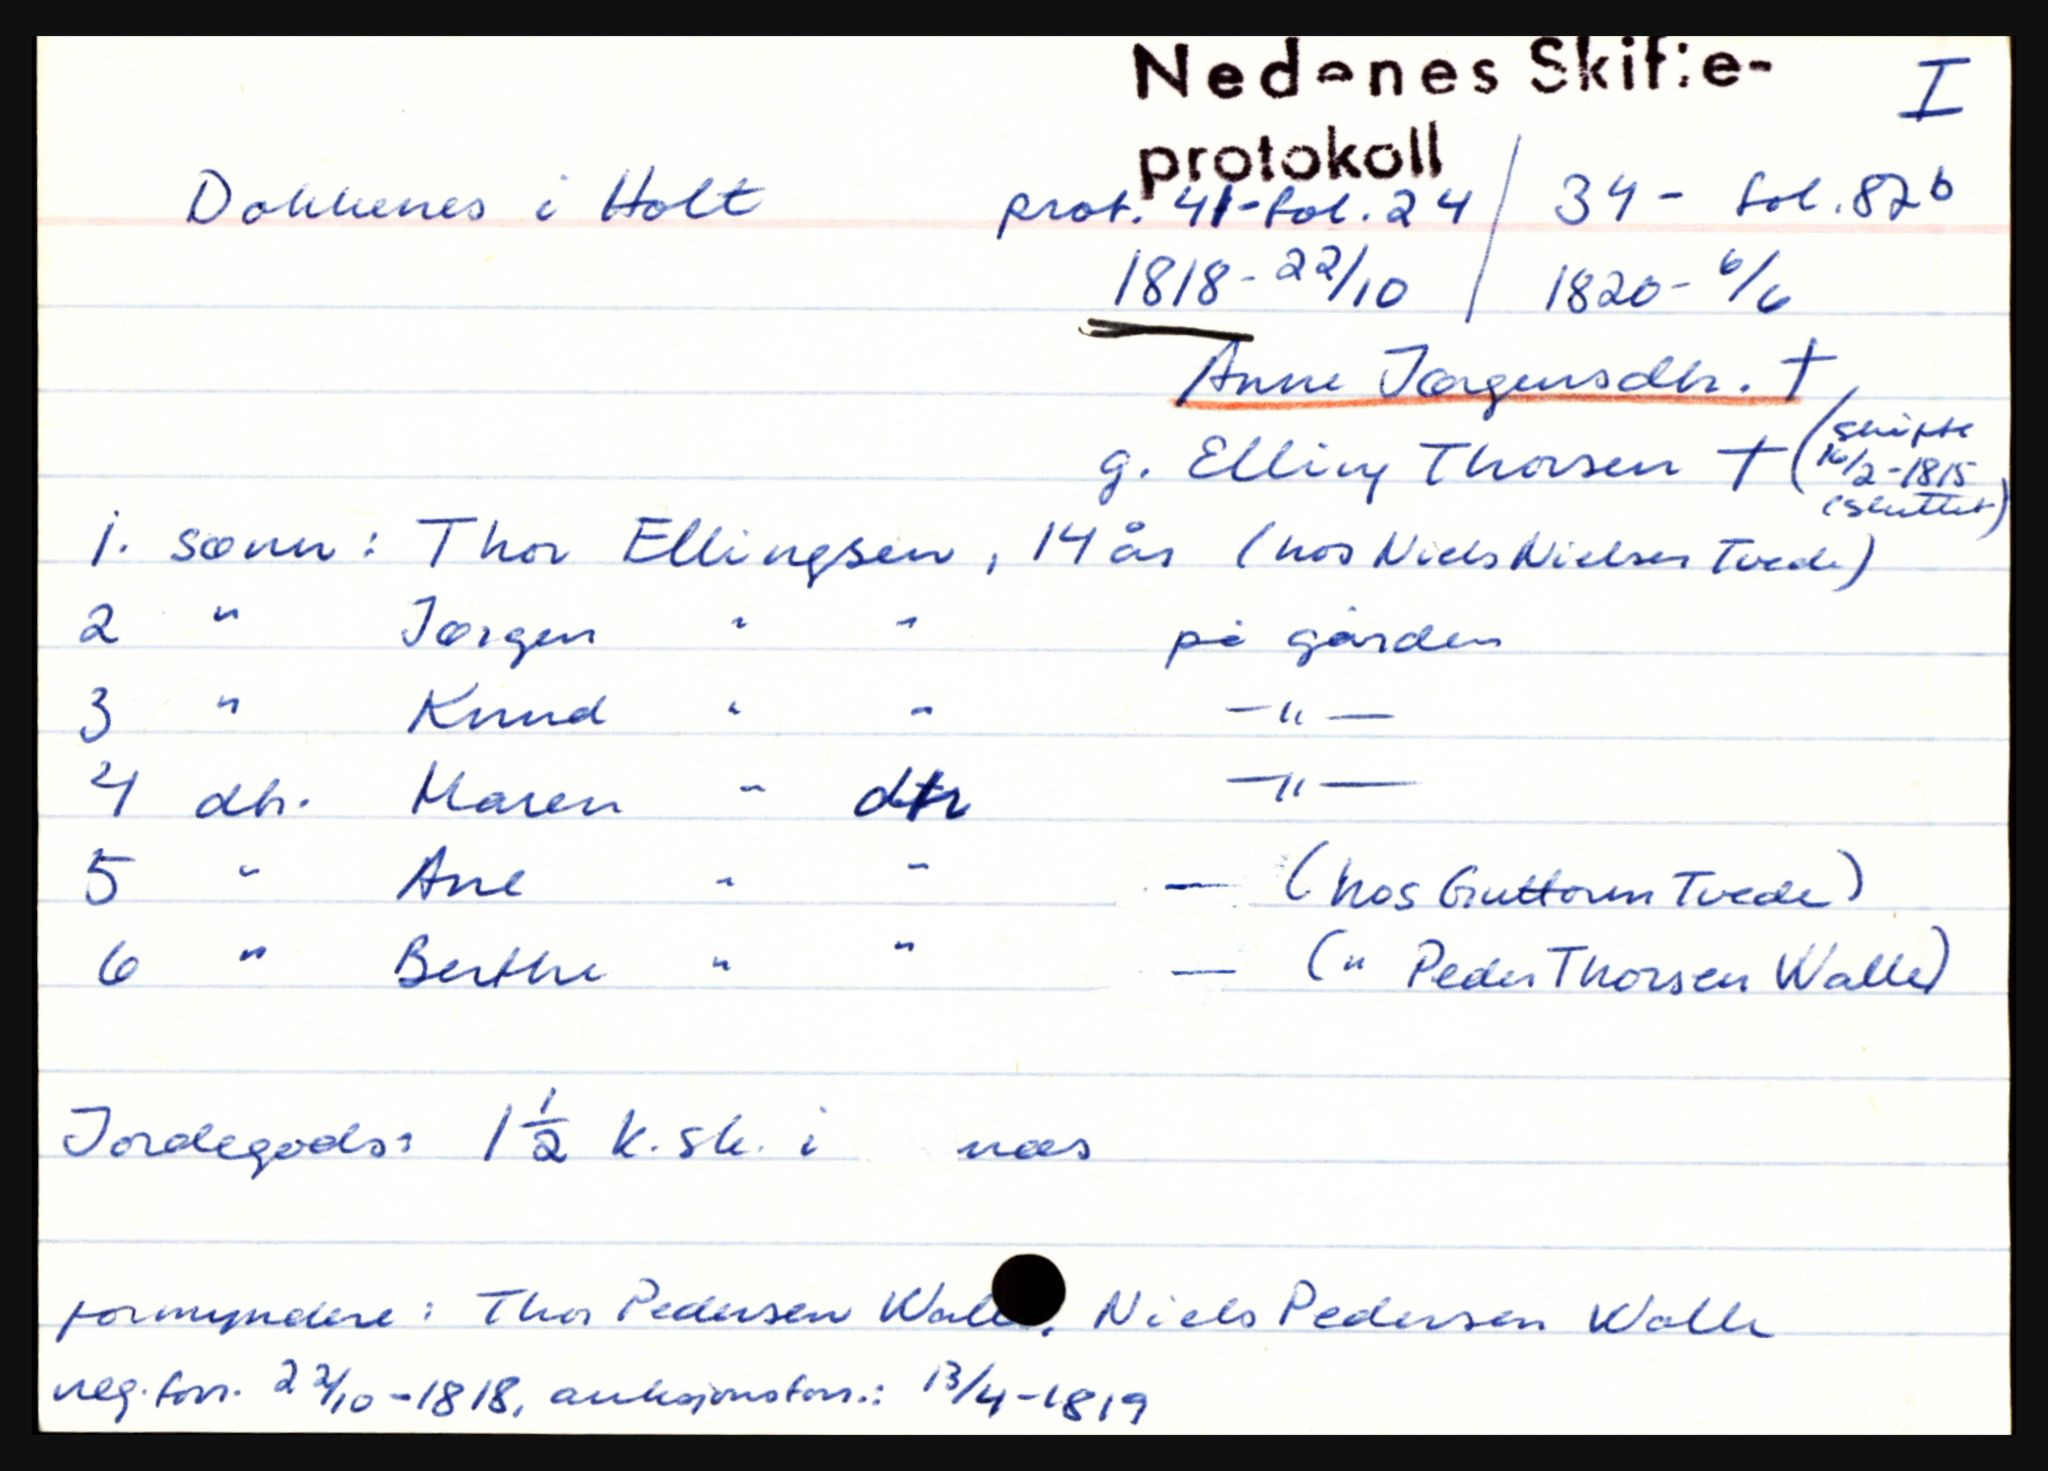 Nedenes Skifte-
protokoll
I
Dokkenes i Holt prot. 41-fol. 24 / 34 - fol. 82b
1818 - 22/10 / 1820 - 6/6
Anne Jørgensdtr. †
g. Elling Thorsen † (skifte
16/2-1815
(sluttet)
1. sønn: Thor Ellingsen, 14 år (hos Niels Nielsen Tvede)
2 " Jørgen " " på gården
3 " Knud " " -"-
4 dtr. Maren " dtr -"-
5 " Ane " " - (hos Guttorm Tvede)
6 " Berthe " " - (" Peder Thorsen Walle)
Jordegods: 1 1/2 k.sk. i næs
formyndere: Thor Pedersen Walle, Niels Pedersen Walle
reg.forr. 22/10-1818, auksjonsforr.: 13/4-1819